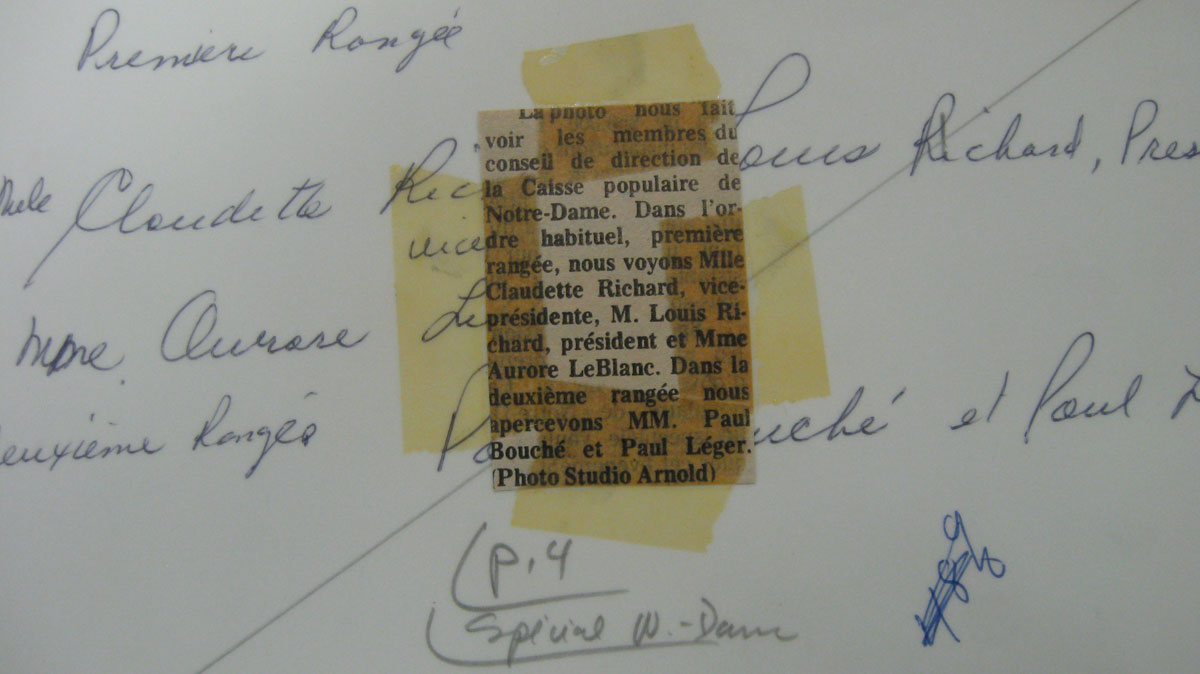 Première Rangée
Claudette Ric Louis Richard, Pres
vice
Mme Aurore Le
euxième Rangée Pa uché et Paul L
La photo nous fait
voir les membres du
conseil de direction de
la Caisse populaire de
Notre-Dame. Dans l'or-
dre habituel, première
rangée, nous voyons Mlle
Claudette Richard, vice-
présidente, M. Louis Ri-
chard, président et Mme
Aurore LeBlanc. Dans la
deuxième rangée nous
apercevons MM. Paul
Bouché et Paul Léger.
(Photo Studio Arnold)
p. 4
Spécial N.-Dame